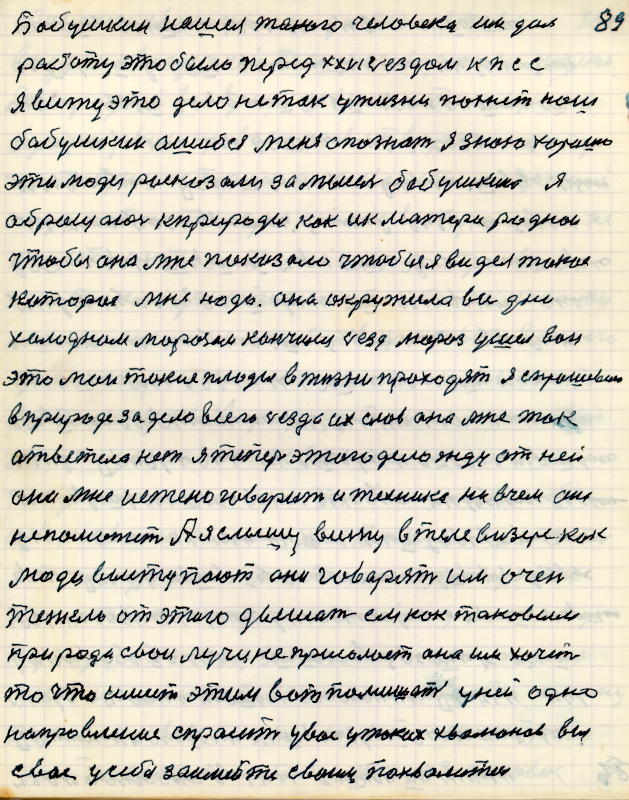 Бабушкин нашел такого человека им дал 89
работу это было перед ххп сездом кпсс
я вижу это дело не так у жизни пахнет наш
бабушкин ашибся меня опознат я знаю хорошо
эти люди росказали замысел бабушкина я
обращаюсь к природы как ик матери родной
чтобы она мне показала чтобы я видел такое
которое мне надо. она окружила ви дни
холодном морозам кончили сезд мороз ушел вон
это мои такие плоды в жизни проходят я спрашеваю
в природе за дело всего сезда их слов она мне так
атветела нет я тепер этого дело жду от ней
она мне истено говарит и техника ни в чем он
непоможет А я слышу вижу в телевизере как
люди выступают они говарят им очен
тежело от этого двешат ем как таковым
природа свои лучи не присылает она им хочет
то что имеет этим вот помишат у ней одно
направление спрасит у вас ужаских хвамонов вы
свое у себя займёте своим похвалитес